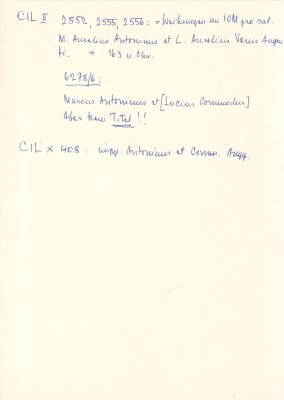 CIL II 2552, 2555, 2556: = Weihungen an IOM pro sal.
M. Aurelius Antoninus et L. Aurelius Verus Augus
ti. = 163 n. Chr.
6278/6:
Marcus Antoninus et [Lucius Commodus]
Aber kein Titel!!
CIL X 408: impp. Antoninus et Comm. Augg.